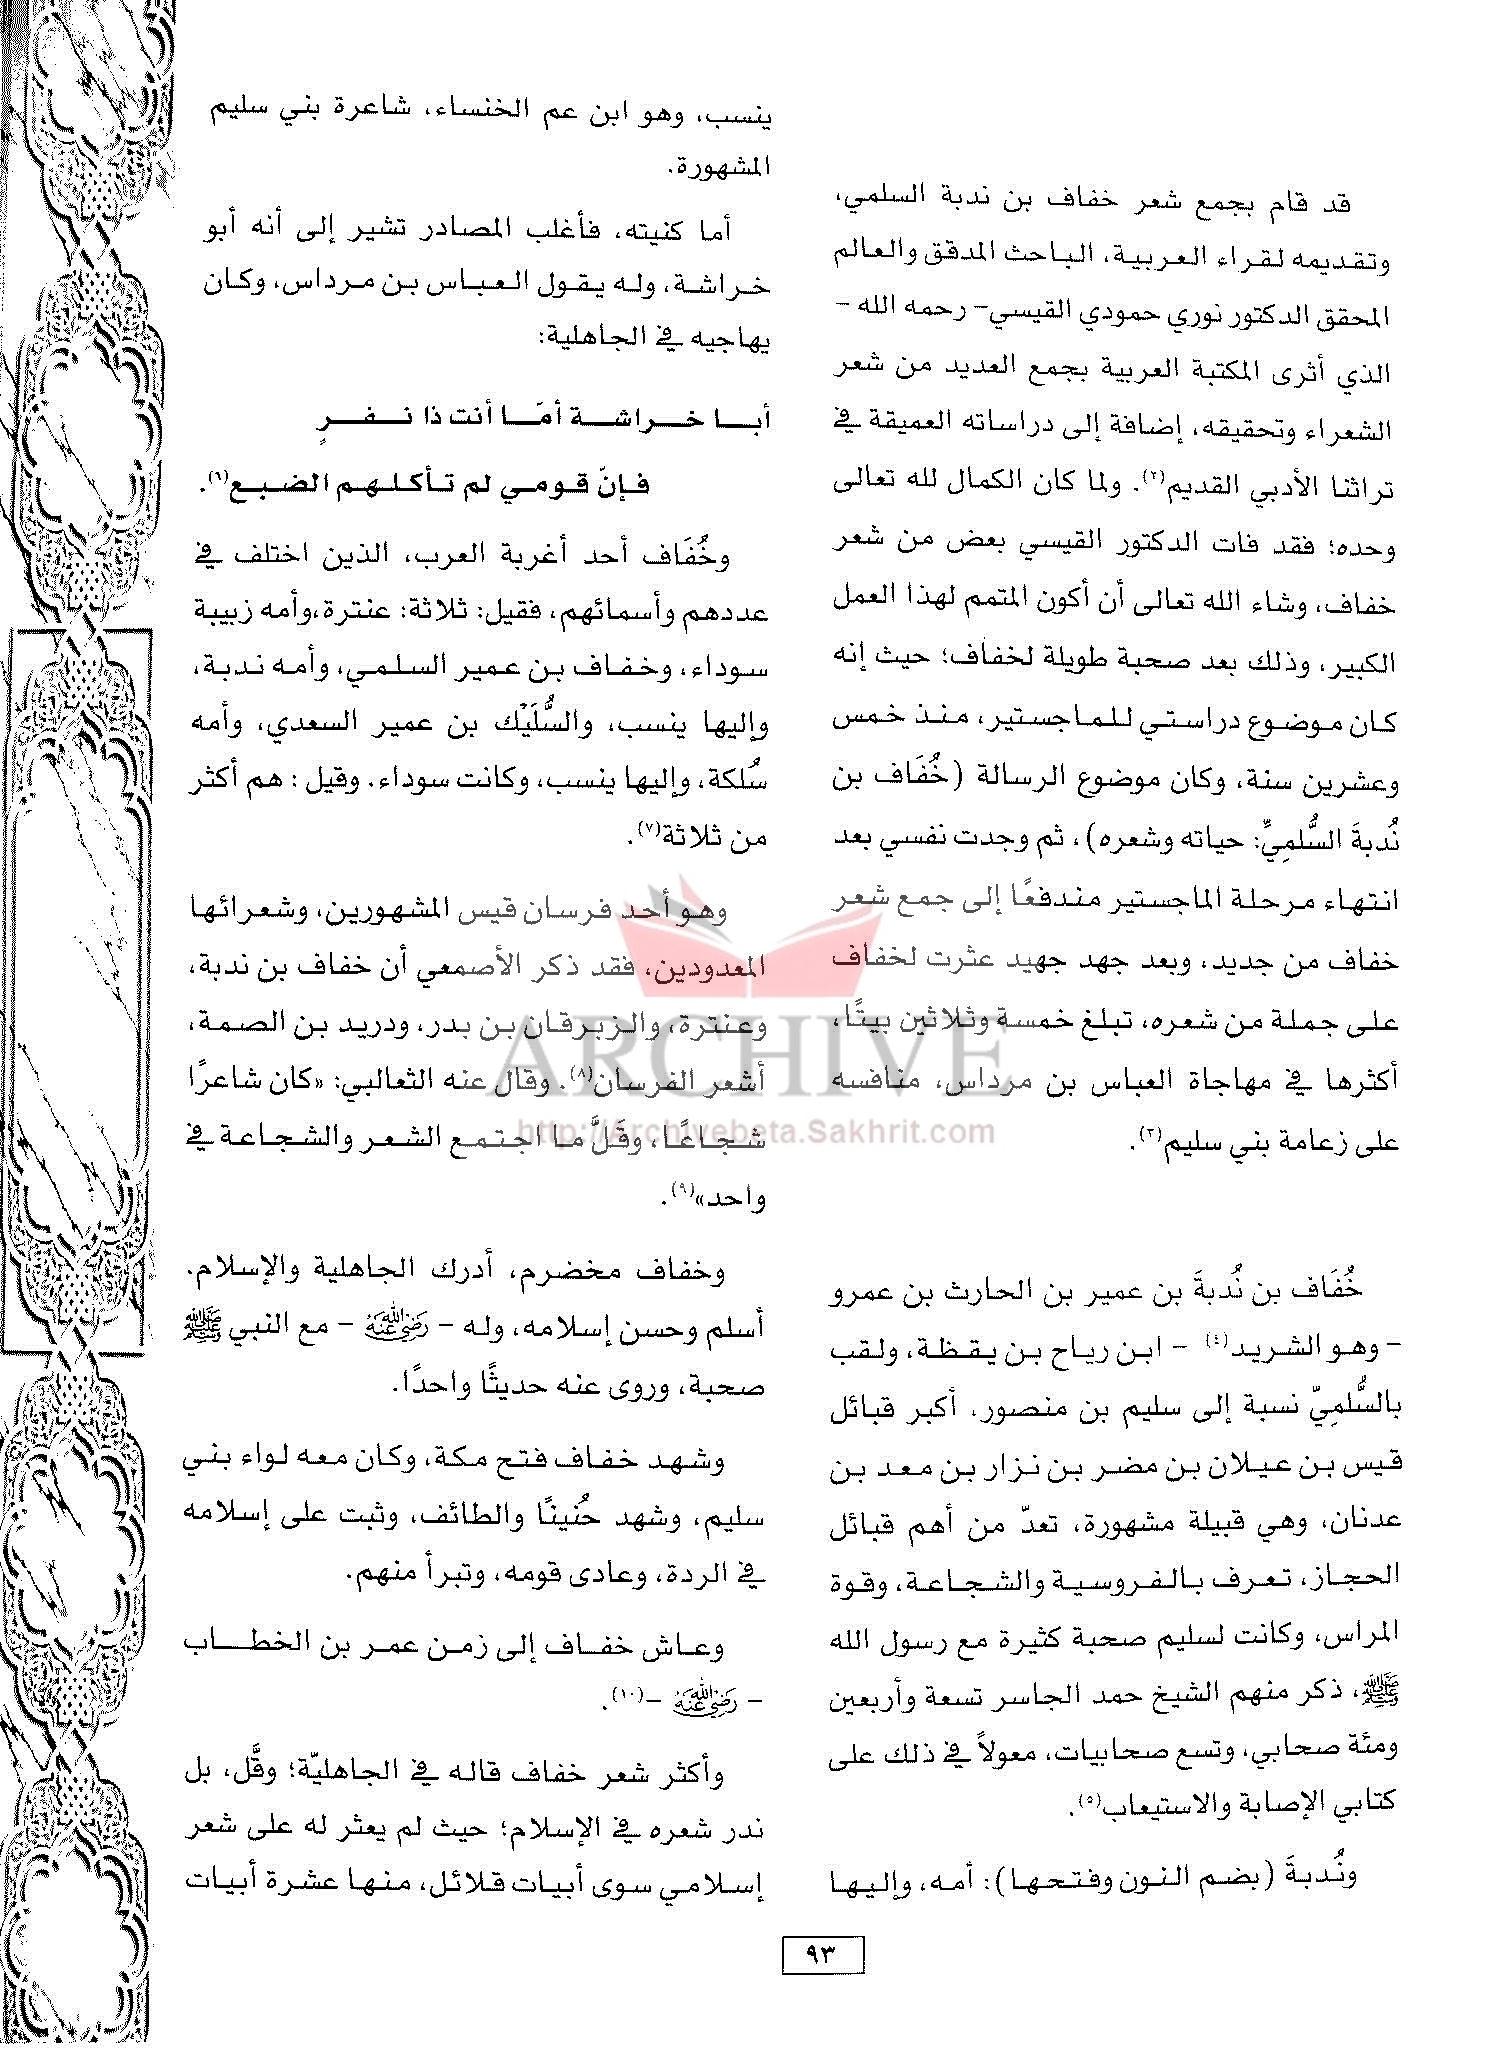 قد قام بجمع شعر خفاف بن ندبة السلمي،
وتقديمه لقراء العربية، الباحث المدقق والعالم
المحقق الدكتور نوري حمودي القيسي- رحمه الله -
الذي أثرى المكتبة العربية بجمع العديد من شعر
الشعراء وتحقيقه، إضافة إلى دراساته العميقة في
تراثنا الأدبي القديم(٢). ولما كان الكمال لله تعالى
وحده؛ فقد فات الدكتور القيسي بعض من شعر
خفاف، وشاء الله تعالى أن أكون المتمم لهذا العمل
الكبير، وذلك بعد صحبة طويلة لخفاف؛ حيث إنه
كان موضوع دراستي للماجستير، منذ خمس
وعشرين سنة، وكان موضوع الرسالة (خُفَاف بن
نُدبةَ السُّلمِيِّ: حياته وشعره)، ثم وجدت نفسي بعد
انتهاء مرحلة الماجستير مندفعًا إلى جمع شعر
خفاف من جديد، وبعد جهد جهيد عثرت لخفاف
على جملة من شعره، تبلغ خمسة وثلاثين بيتًا،
أكثرها في مهاجاة العباس بن مرداس، منافسه
على زعامة بني سليم(٣).
خُفَاف بن نُدبةَ بن عمير بن الحارث بن عمرو
- وهو الشريد(٤) - ابن رياح بن يقظة، ولقب
بالسُّلمِيّ نسبة إلى سليم بن منصور، أكبر قبائل
قيس بن عيلان بن مضر بن نزار بن معد بن
عدنان، وهي قبيلة مشهورة، تعدّ من أهم قبائل
الحجاز، تعرف بالفروسية والشجاعة، وقوة
المراس، وكانت لسليم صحبة كثيرة مع رسول الله
ﷺ، ذكر منهم الشيخ حمد الجاسر تسعة وأربعين
ومئة صحابي، وتسع صحابيات، معولاً في ذلك على
كتابي الإصابة والاستيعاب(٥).
ونُدبةَ (بضم النون وفتحها): أمه، وإليها
ينسب، وهو ابن عم الخنساء، شاعرة بني سليم
المشهورة.
أما كنيته، فأغلب المصادر تشير إلى أنه أبو
خراشة، وله يقول العباس بن مرداس، وكان
يهاجيه في الجاهلية:
أبا خراشة أمّا أنت ذا نفرٍ
فإنّ قومي لم تأكلهم الضبع(٦).
وخُفَاف أحد أغربة العرب، الذين اختلف في
عددهم وأسمائهم، فقيل: ثلاثة: عنترة،وأمه زبيبة
سوداء، وخفاف بن عمير السلمي، وأمه ندبة،
وإليها ينسب، والسُّلَيْك بن عمير السعدي، وأمه
سُلكة، وإليها ينسب، وكانت سوداء. وقيل : هم أكثر
من ثلاثة(٧).
وهو أحد فرسان قيس المشهورين، وشعرائها
المعدودين، فقد ذكر الأصمعي أن خفاف بن ندبة،
وعنترة، والزبرقان بن بدر، ودريد بن الصمة،
أشعر الفرسان(٨). وقال عنه الثعالبي: «كان شاعرًا
شجاعًا، وقَلَّ ما اجتمع الشعر والشجاعة في
واحد»(٩).
وخفاف مخضرم، أدرك الجاهلية والإسلام.
أسلم وحسن إسلامه، وله - رضي الله عنه - مع النبي ﷺ
صحبة، وروى عنه حديثًا واحدًا.
وشهد خفاف فتح مكة، وكان معه لواء بني
سليم، وشهد حُنينًا والطائف، وثبت على إسلامه
في الردة، وعادى قومه، وتبرأ منهم.
وعاش خفاف إلى زمن عمر بن الخطاب
- رضي الله عنه -(١٠).
وأكثر شعر خفاف قاله في الجاهليّة؛ وقَّل، بل
ندر شعره في الإسلام؛ حيث لم يعثر له على شعر
إسلامي سوى أبيات قلائل، منها عشرة أبيات
٩٣
ARCHIVE
http://Archivebeta.Sakhrit.com